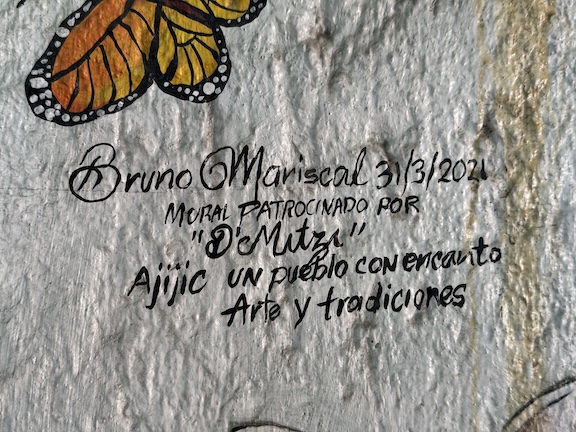 Bruno Mariscal 31/3/2021
MURAL PATROCINADO POR
"D'Mitzi"
Ajijic UN pueblo con encanto
Arte y tradiciones